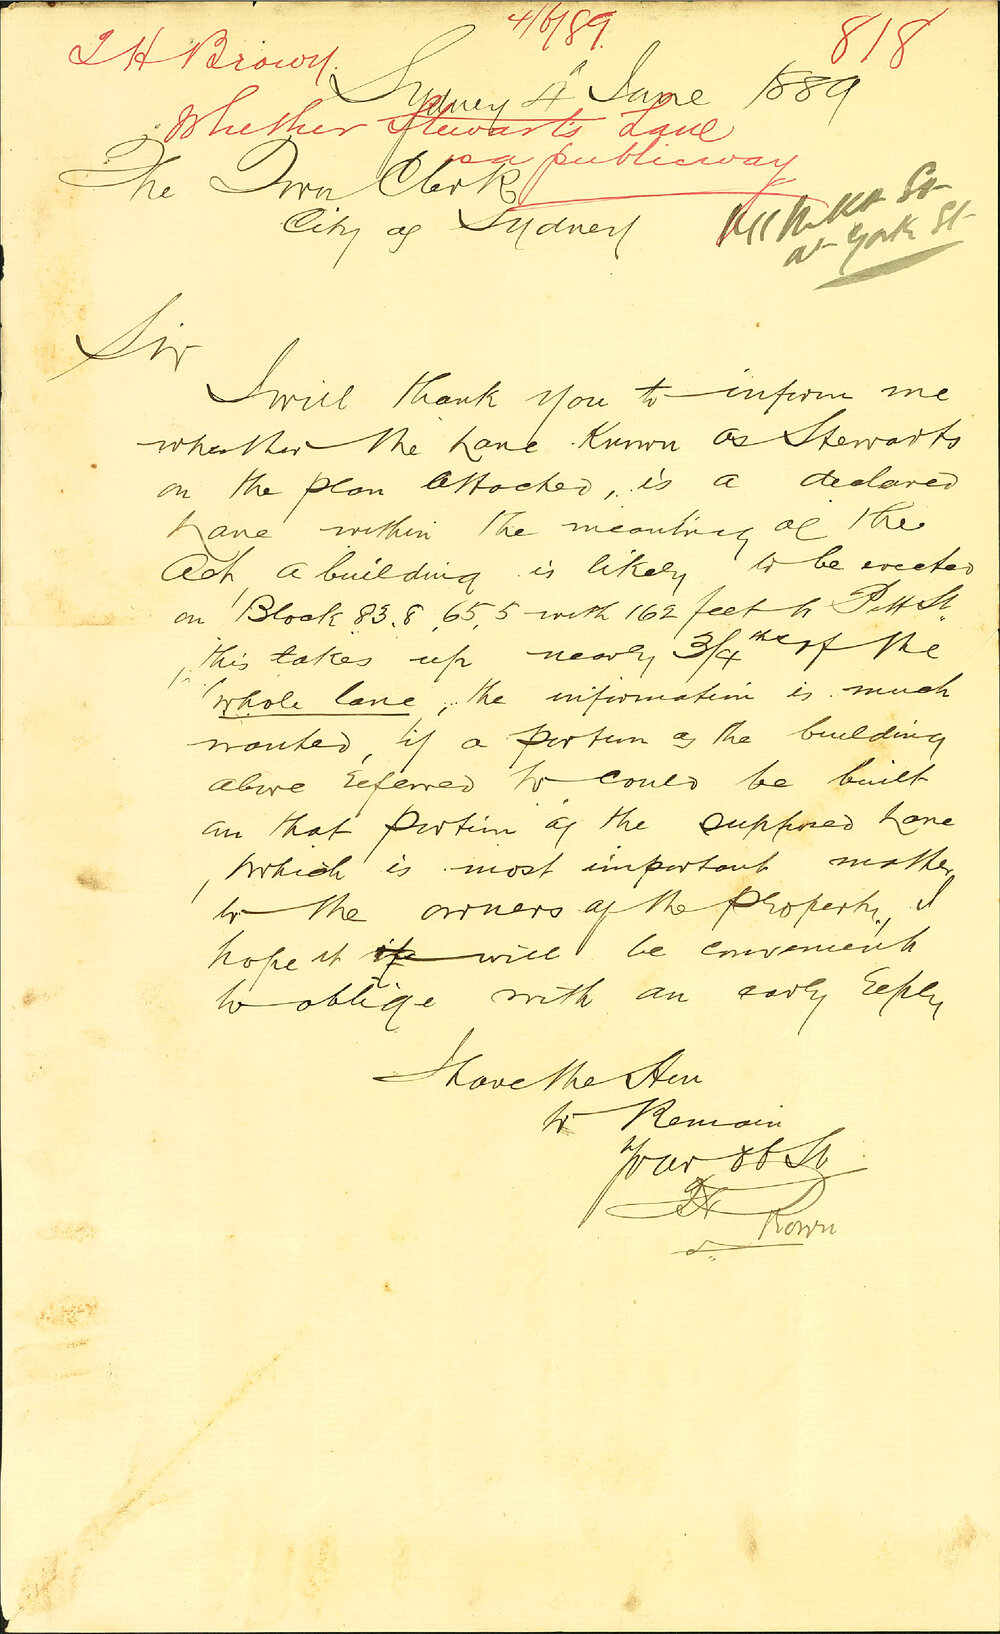 4/6/89
818
T H Brown.
Sydney 4th June 1889
Whether Stewarts Lane
is a public way
The Town Clerk
City of Sydney
Market St
at York St
Sir
I will thank you to inform me
whether the Lane Known as Stewarts
on the plan attached, is a declared
Lane within the meaning of the
Act, a building is likely to be erected
on Block 83.8, 65.5 with 162 feet to Pitt St.
this takes up nearly 3/4ths of the
whole lane, the information is much
wanted, if a portion of the building
above referred to could be built
on that portion of the supposed Lane
which is most important matter
to the owners of the Property, I
hope it will be convenient
to oblige with an early reply
I have the Hon
to Remain
Your Ob St
TH Brown